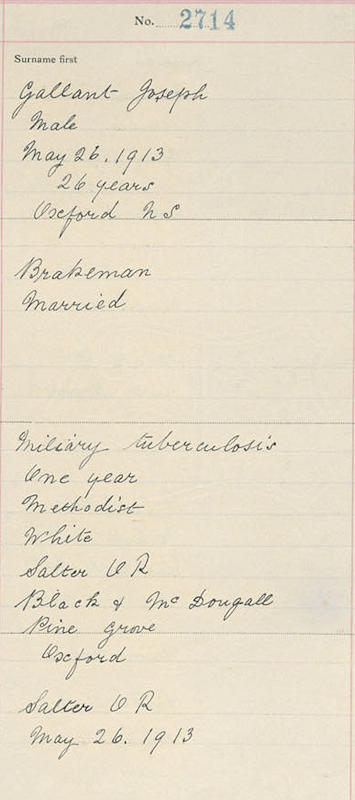 No. 2714
Surname first
Gallant Joseph
Male
May 26. 1913
26 years
Oxford N S
Brakeman
Married
Miliary tuberculosis
One year
Methodist
White
Salter O R
Black & McDougall
Pine Grove
Oxford
Salter O R
May 26. 1913